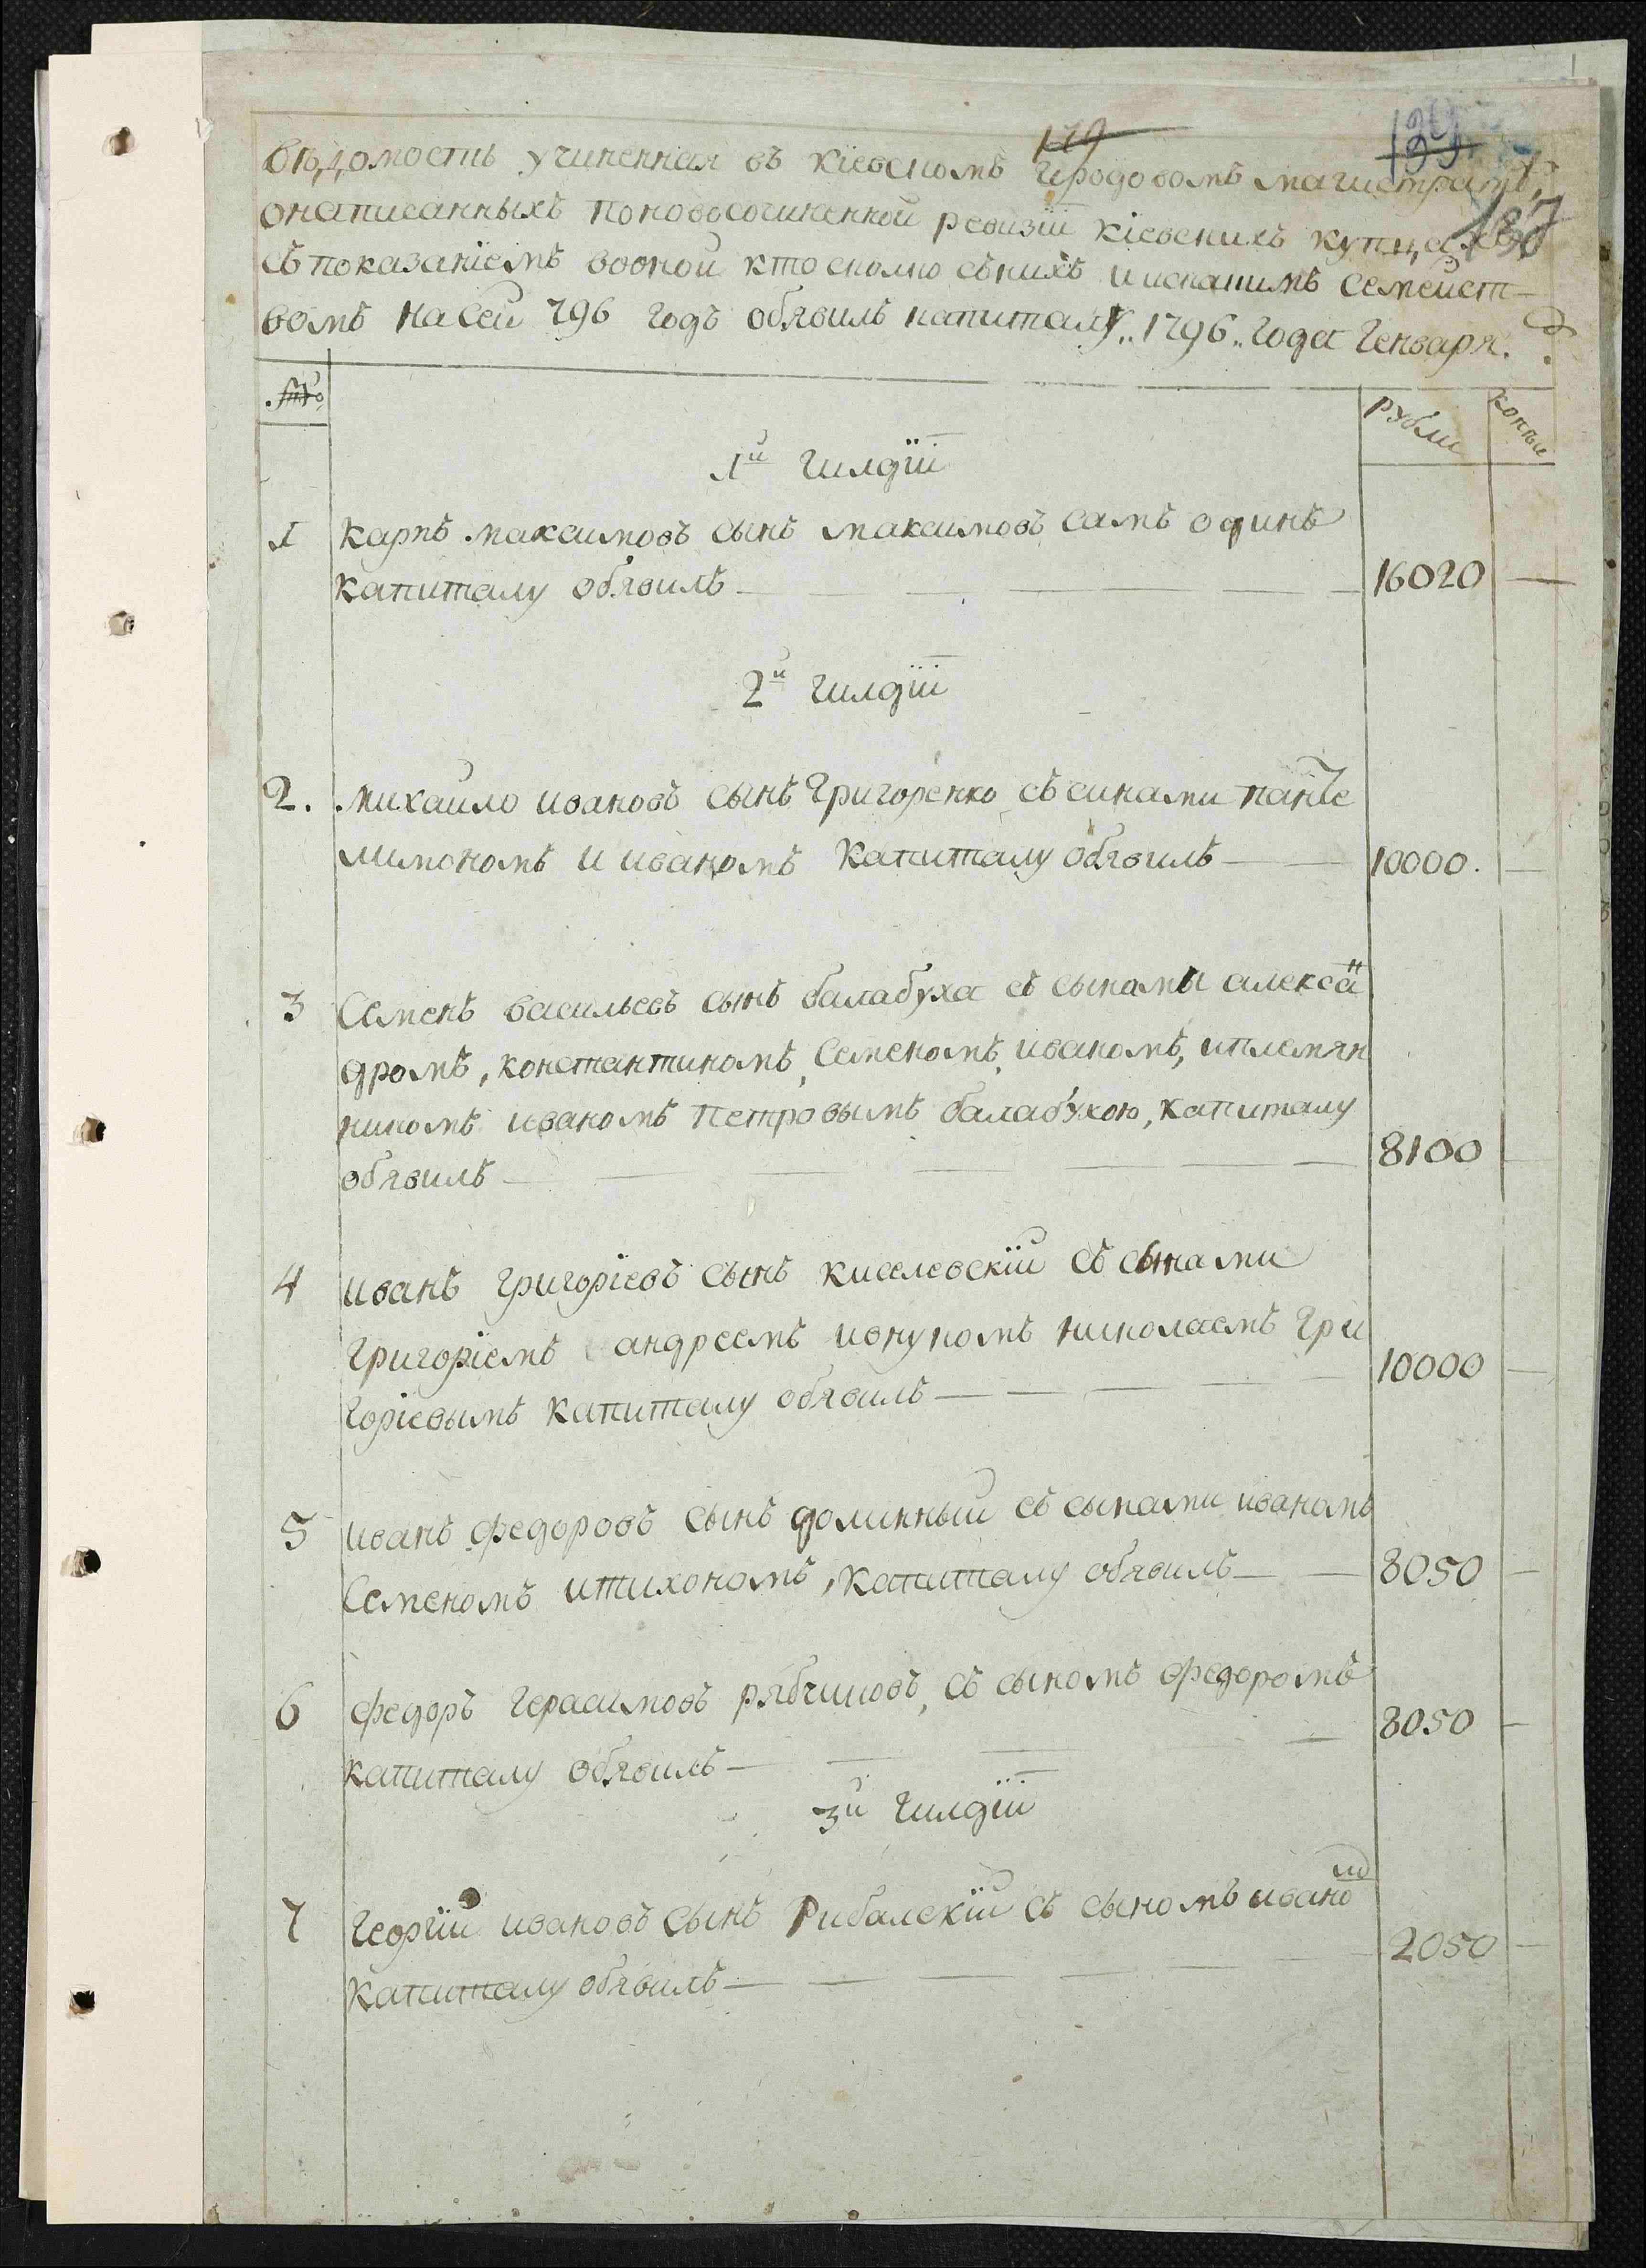 179
139
137
вѣдомость учиненная въ кіевскомъ городовомъ магистратѣ,
онаписанныхъ поновосочиненной ревизіи кіевскихъ купцахъ
съпоказаніемъ воономъ кто сколко сънихъ иискакимъ семейст-
вомъ насей 796 годъ обявилъ капиталу „1796„ года генваря.
рубли копѣи
1й гилдіи
1 карпъ максимовъ сынъ максимовъ самъ одинъ
капиталу обявилъ — 16020 —
2й гилдіи
2. михайло ивановъ сынъ григоренко съсинами панте
лимономъ и иваномъ капиталу обявилъ — 10000. —
3 Семенъ васильевъ сынъ балабуха съ сынами алексан
дромъ, константиномъ, Семеномъ, иваномъ, иплемян
никомъ иваномъ петровымъ балабухою, капиталу
обявилъ — 8100 —
4 иванъ григоріевъ сынъ киселевскій съ сынами
григоріемъ андреемъ ивнукомъ николаемъ гри
горіевымъ капиталу обявилъ — 10000 —
5 иванъ федоровъ сынъ долинный съ сынами иваномъ
Семеномъ итихономъ, капиталу обявилъ — 8050 —
6 федоръ герасимовъ рябчиковъ, съ сыномъ федоромъ
капиталу обявилъ — 8050 —
3й гилдіи
7 георгій ивановъ сынъ Рибалскій съ сыномъ иваном
капиталу обявилъ — 2050 —